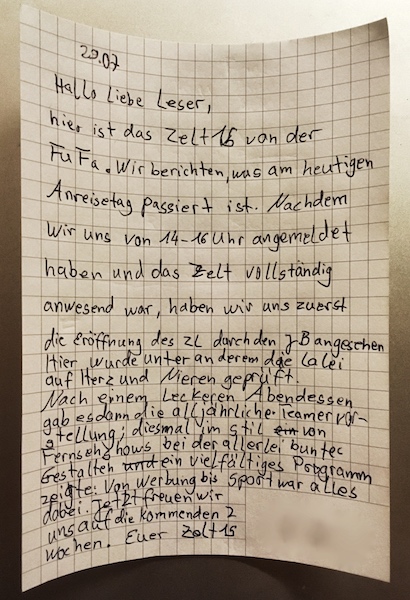 29.07
Hallo Liebe Leser,
hier ist das Zelt 16 von der
FuFa. Wir berichten, was am heutigen
Anreisetag passiert ist. Nachdem
wir uns von 14-16 Uhr angemeldet
haben und das Zelt vollständig
anwesend war, haben wir uns zuerst
die Eröffnung des ZL durch den JB angesehen
Hier wurde unter anderem die Lalei
auf Herz und Nieren geprüft.
Nach einem Leckeren Abendessen
gab es dann die alljährliche teamervor-
stellung; diesmal im stil von
Fernsehshows bei der allerlei bunter
Gestalten ein vielfältiges Programm
zeigte: Von Werbung bis Sport war alles
dabei. Jetzt freuen wir
uns auf die kommenden 2
wochen. Euer Zelt 15